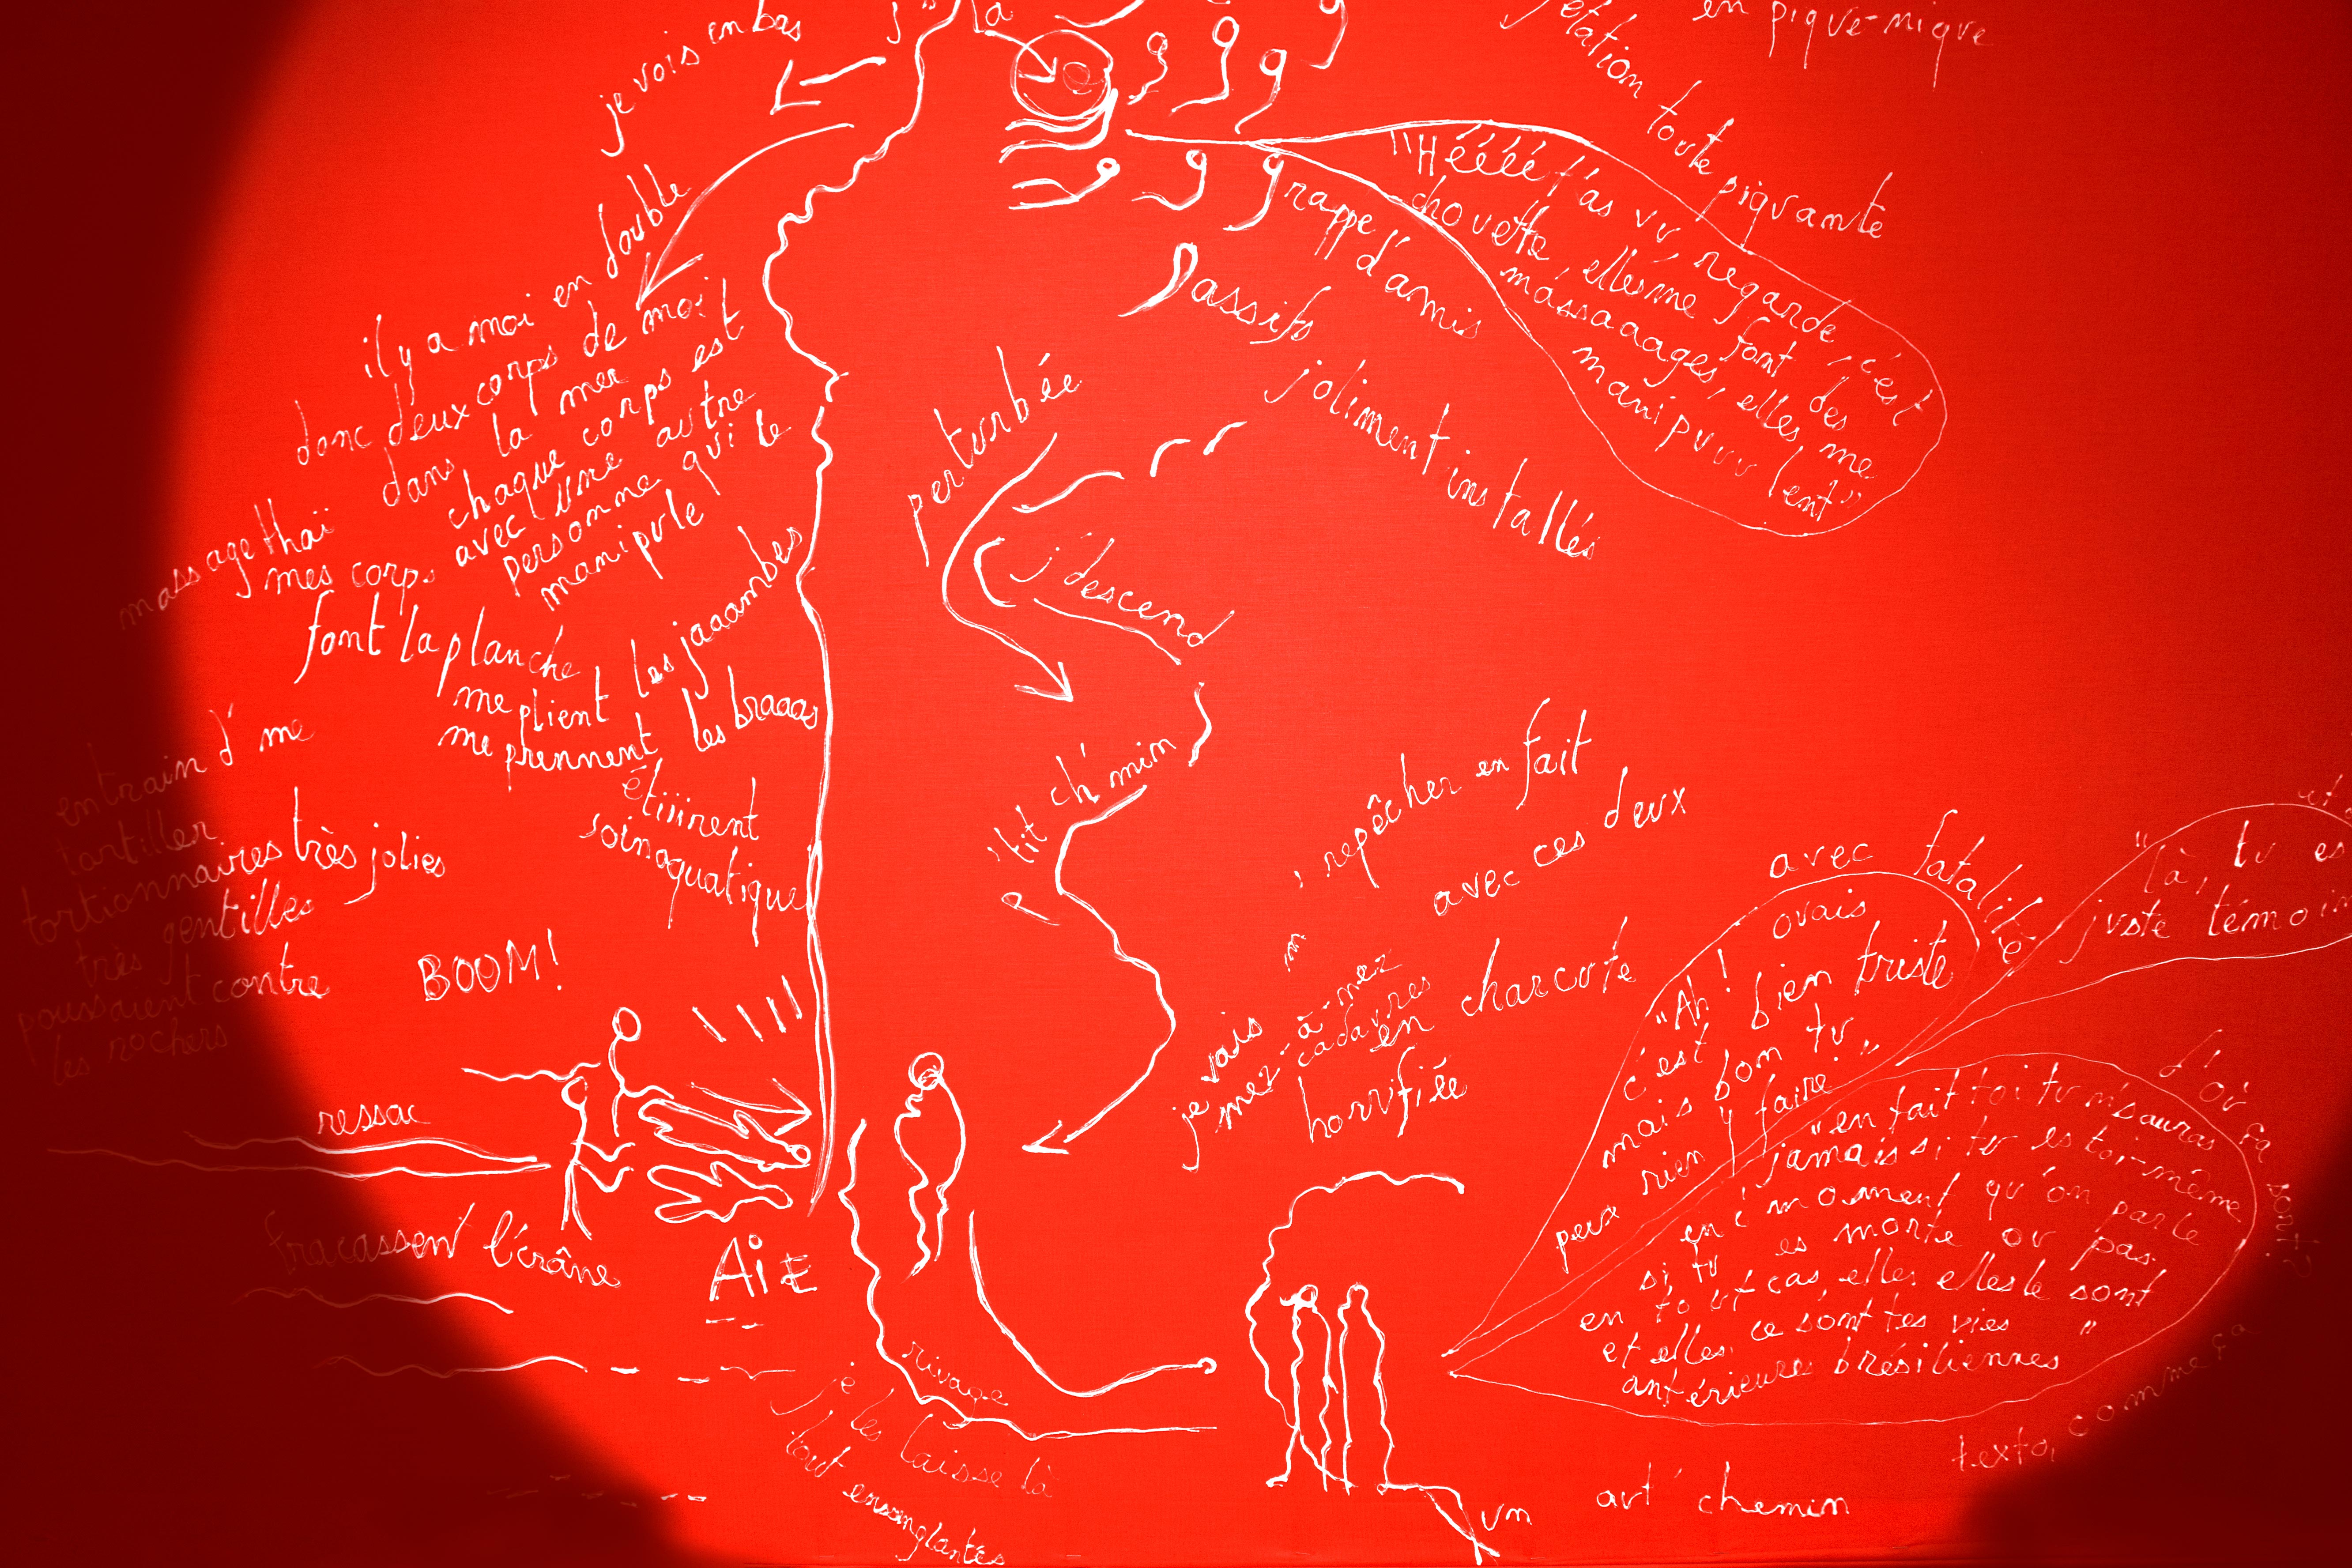 je vois en bas
j'
là
étation toute piquante
en pique-nique
"Héééé t'as vu, regarde, c'est
chouette, elles me font des
massaaages, elles me
manipuuu lent"
grappe d'amis
passifs
joliment installés
il y a moi en double
donc deux corps de moi
dans la mer
chaque corps est
avec l'une autre
personne qui le
manipule
massage thaï
mes corps
font la planche
me plient les jaaambes
me prennent les braaas
étiiirent
soin aquatique
perturbée
j'descend
p'tit ch'min
en train d'me
tortiller
tortionnaires très jolies
très gentilles
poussaient contre
les rochers
BOOM!
ressac
fracassent l'crâne
AiE
rivage
je les laisse là
tout ensanglantés
m'repêcher en fait
avec ces deux
cadavres
en charcute
je vais
nez-à-nez
horrifiée
avec fatalité
"Ah! ouais
c'est bien triste
mais bon tu
peux rien y faire!"
"là, tu es
juste témoin
et
d'où ça sort?
"en fait toi tu n'sauras
jamais si tu es toi-même
en c'moment qu'on parle
si tu es morte ou pas.
en tout cas, elles elles le sont
et elles, ce sont tes vies
antérieures brésiliennes"
texto, comme ça
un aut' chemin